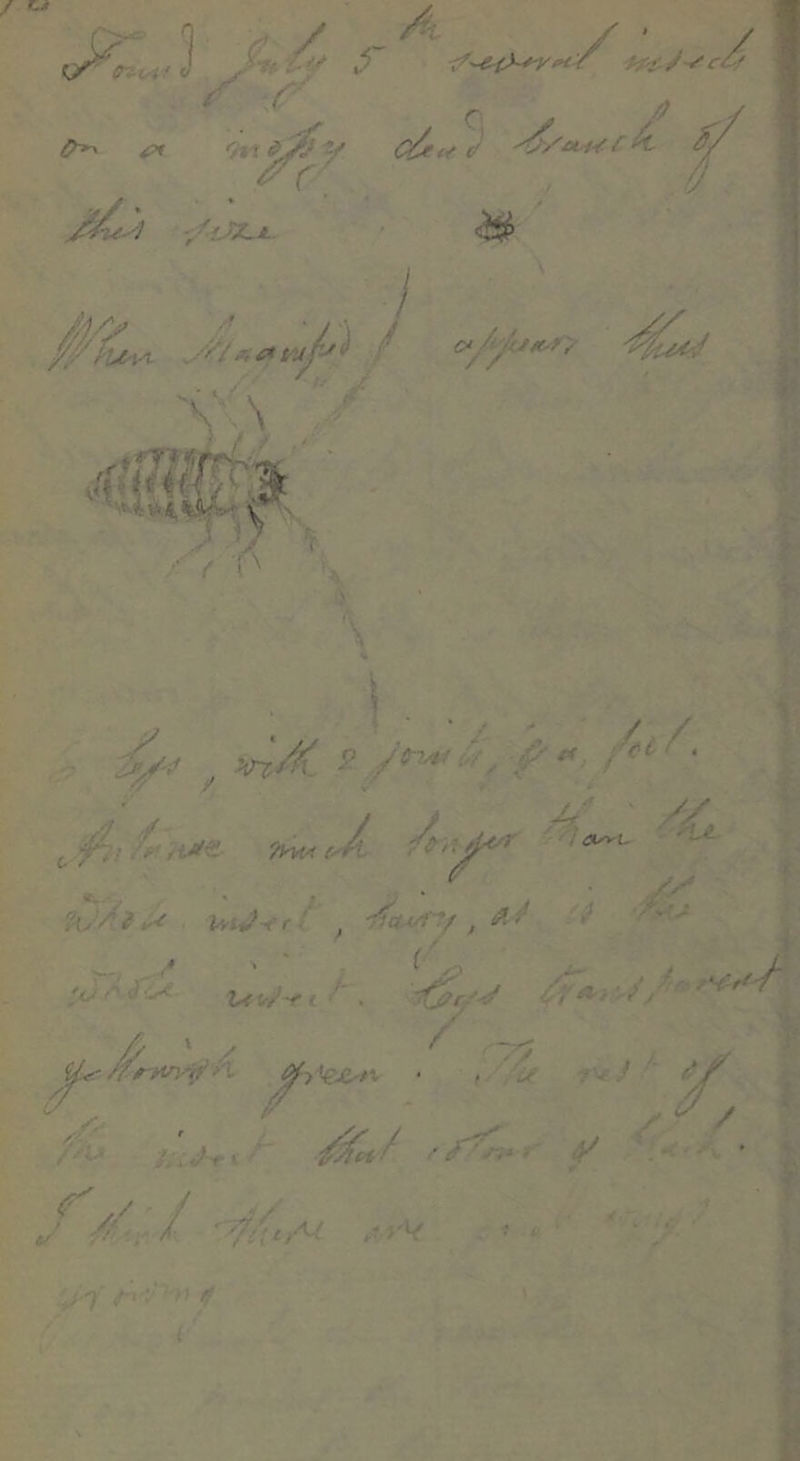 Found July 5th several insects
on a mossy dead branch of
this size
When magnified / appears thus
legs, with 2 joints, & a foot.
Antennae much longer than the
whole insect, hairy, as is the
whole insect. Legs transparent
yellowish green. The rest of
the insect that colour of
I think there are